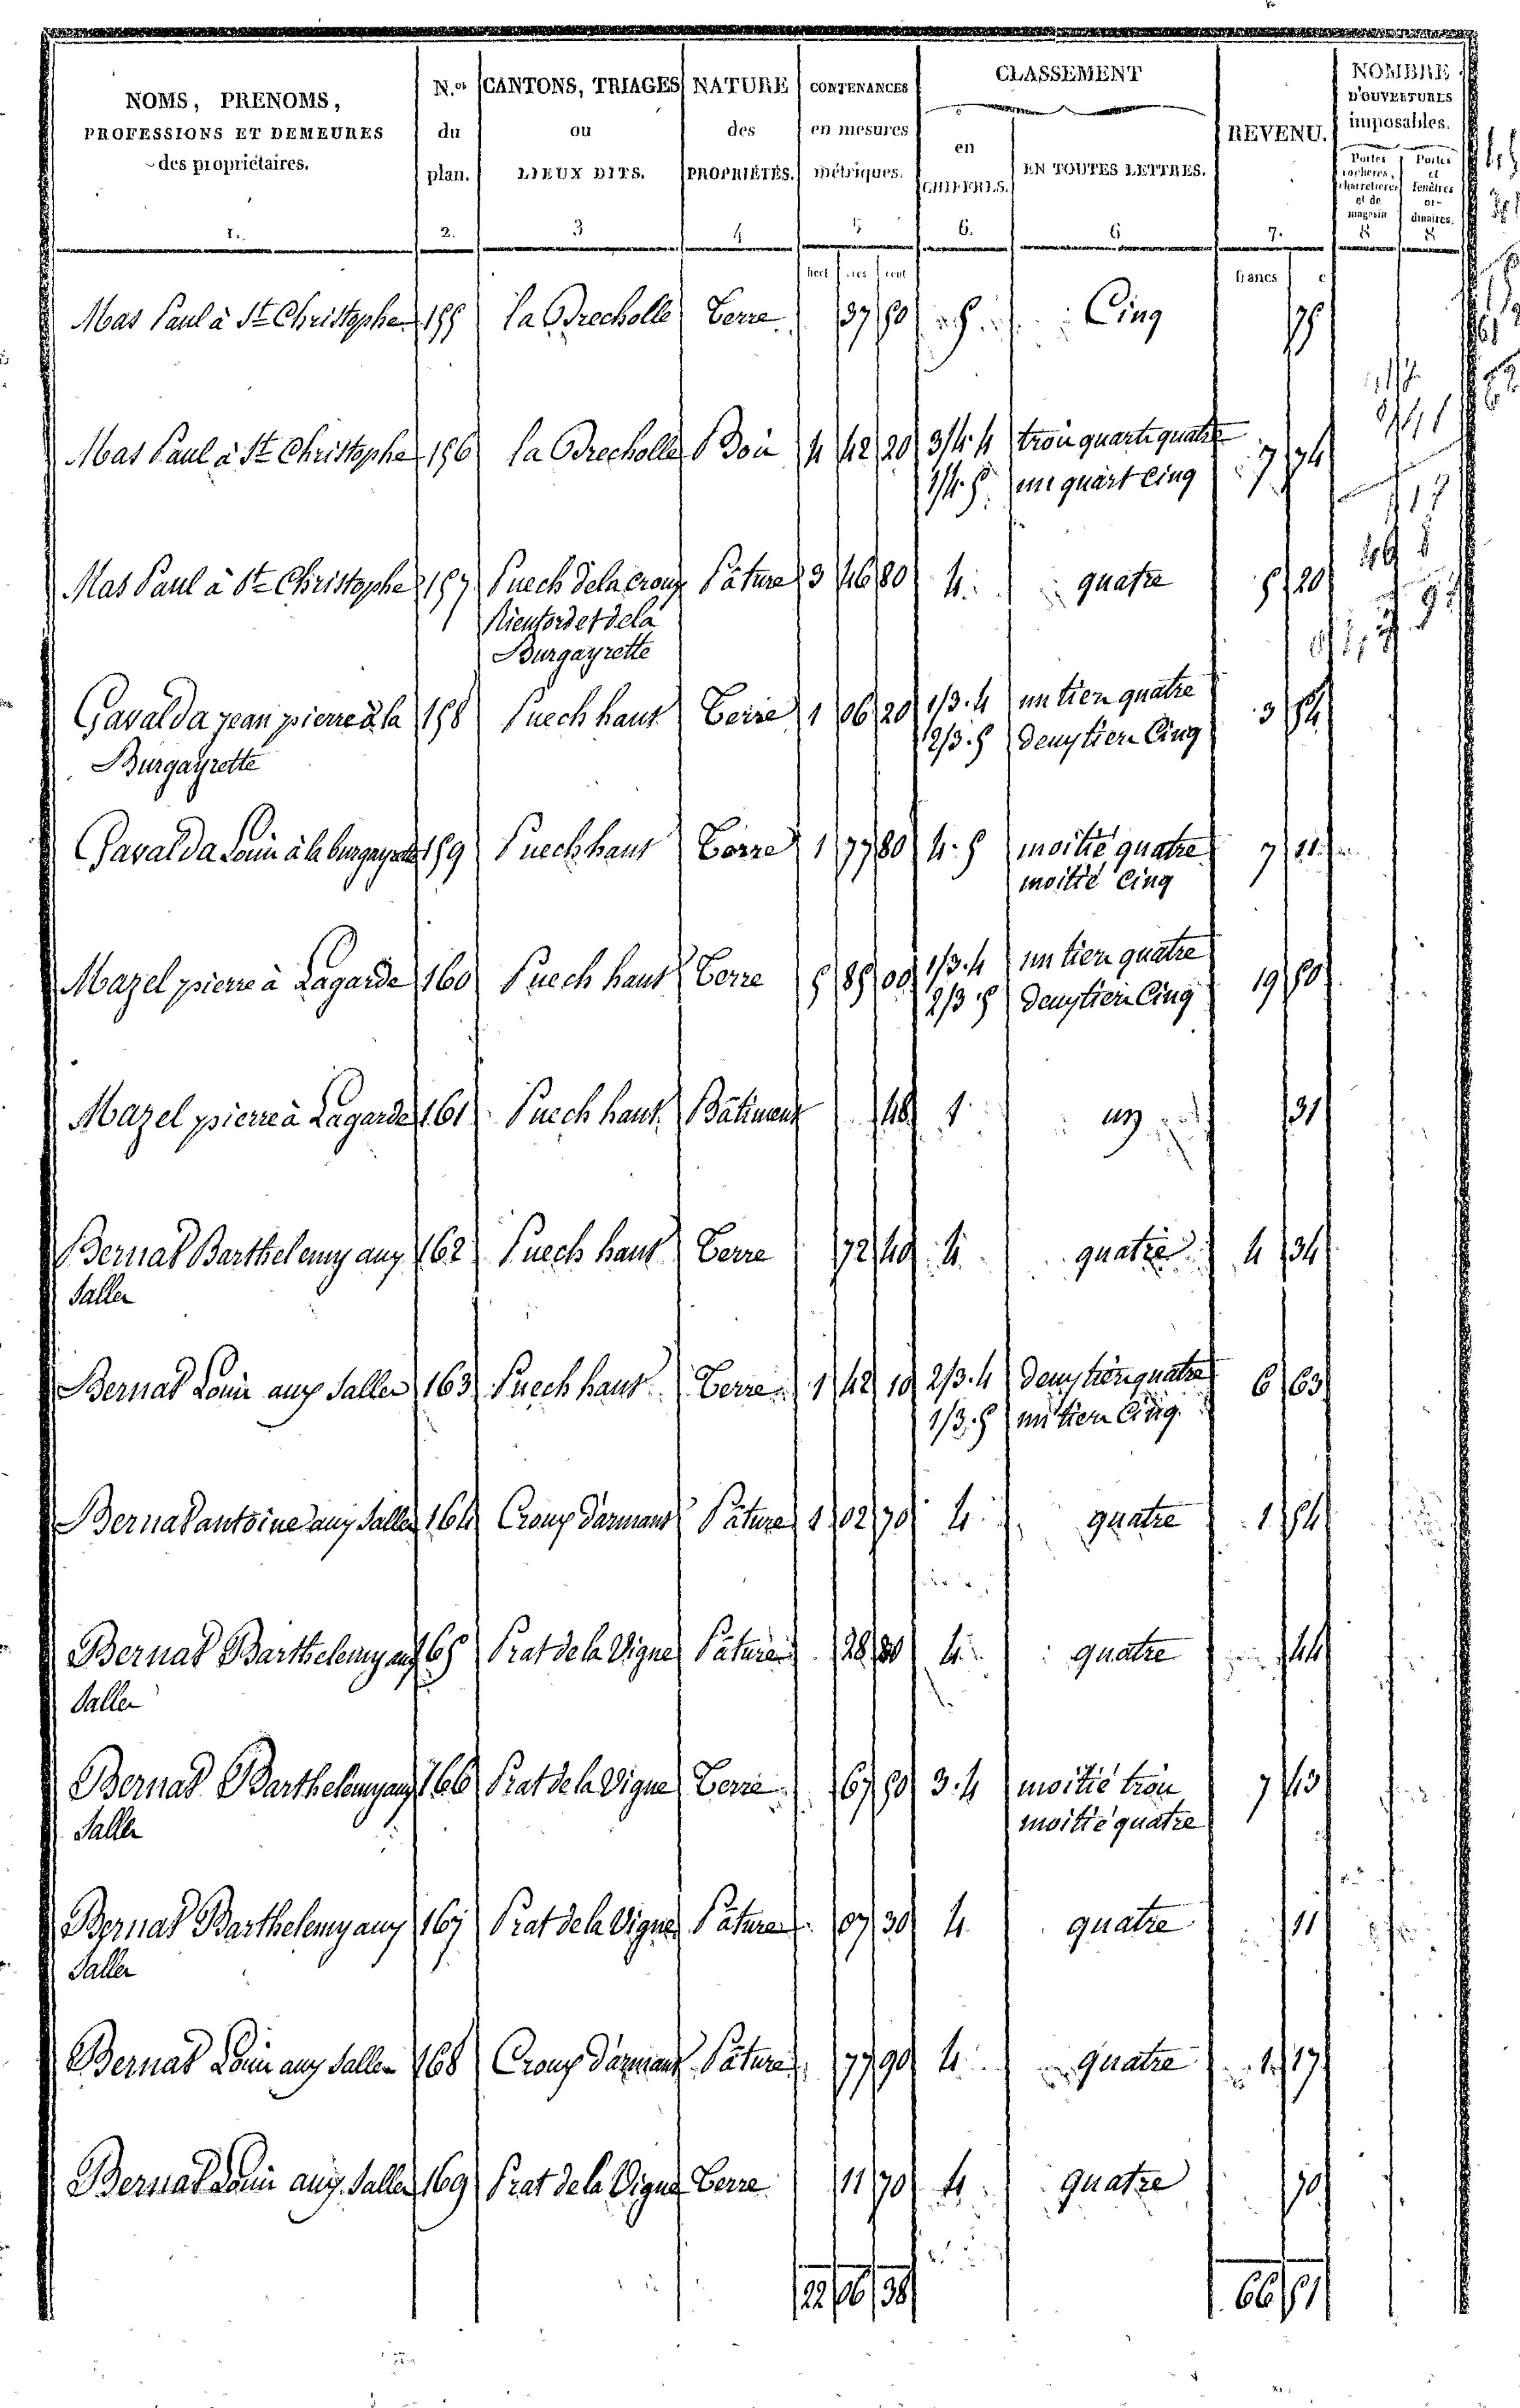 NOMS, PRENOMS,
PROFESSIONS ET DEMEURES
des propriétaires.
N.os
du
plan.
CANTONS, TRIAGES
ou
LIEUX DITS.
NATURE
des
PROPRIÉTÉS.
CONTENANCES
en mesures
métriques.
CLASSEMENT
en
CHIFFRES.
EN TOUTES LETTRES.
REVENU.
NOMBRE
D'OUVERTURES
imposables.
Portes cochères, charretieres et de magasin
Portes et fenêtres ordinaires.
1. 2. 3 4 5 6. 6 7. 8 8
hect ares cent francs c
Mas Paul à St Christophe 155 la Brecholle Terre 37 50 5 Cinq 75
Mas Paul à St Christophe 156 la Brecholle Bois 4 42 20 3/4. 4 trois quarts quatre 7 74
1/4. 5 un quart Cinq
Mas Paul à St Christophe 157 Puech de la croux Pâture 3 46 80 4. quatre 5 20
Rienfordet de la
Burgayrette
Gavalda jean pierre à la 158 Puech haut Terre 1 06 20 1/3. 4 un tiers quatre 3 54
Burgayrette 2/3. 5 deux tiers Cinq
Gavalda Louis à la burgayrette 159 Puech haut Terre 1 77 80 4. 5 moitié quatre 7 11
moitié Cinq
Mazel pierre à Lagarde 160 Puech haut Terre 5 85 00 1/3. 4 un tiers quatre 19 50
2/3 5 deux tiers Cinq
Mazel pierre à Lagarde 161 Puech haut Bâtiment 48 1. un 31
Bernat Barthelemy aux 162 Puech haut Terre 72 40 4 quatre 4 34
Salles
Bernat Louis aux Salles 163 Puech haut Terre 1 42 10 2/3. 4 deux tiers quatre 6 63
1/3. 5 un tiers Cinq.
Bernat antoine aux Salles 164 Croux d'armant Pâture 1 02 70 4 quatre 1 54
Bernat Barthelemy aux 165 Prat de la Vigne Pâture 28 80 4. quatre 44
Salles
Bernat Barthelemy aux 166 Prat de la Vigne Terre 67 90 3. 4 moitié trois 7 13
Salles moitié quatre
Bernat Barthelemy aux 167 Prat de la Vigne Pâture 07 30 4 quatre 11
Salles
Bernat Louis aux Salles 168 Croux d'armant Pâture 77 90 4 quatre 1 17
Bernat Louis aux Salles 169 Prat de la Vigne Terre 11 70 4 quatre 70
22 06 38 66 51